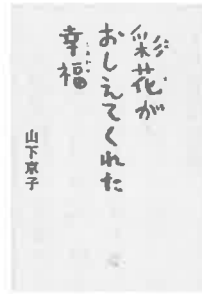 彩花が
おしえてくれた
幸福
しあわせ
山下京子